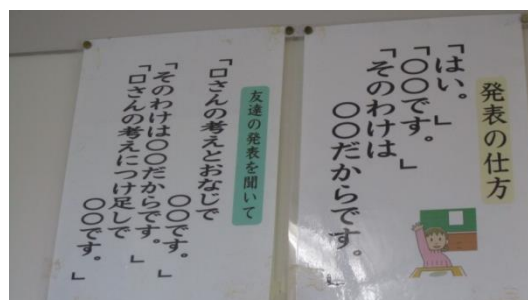 発表の仕方
「はい。」
「〇〇です。」
「そのわけは
〇〇だからです。」
友達の発表を聞いて
「口さんの考えとおなじで
〇〇です。
「そのわけは〇〇だからです。」
「口さんの考えにつけ足しで
〇〇です。」